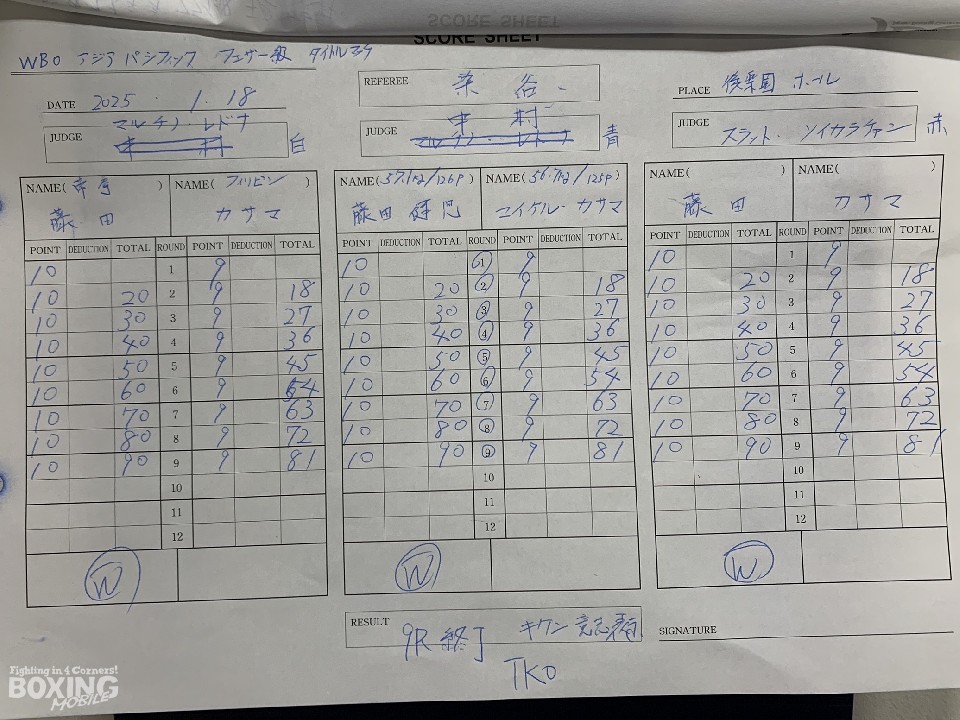 SCORE SHEET
SCORE SHEET
WBO アジア パシフィック フェザー級 タイトルマッチ
DATE 2025 . 1. 18
REFEREE 染 谷
PLACE 後楽園 ホール
マルチノ・レドナ
中 村
JUDGE 中 村 白
JUDGE マルチノ・レドナ 青
JUDGE スラット・ソイカラチャン 赤
NAME( 帝拳 ) NAME( フィリピン ) NAME( 57.1kg/126P ) NAME( 56.7kg/125P ) NAME( ) NAME( )
藤 田 カサマ 藤田 健児 マイケル・カサマ 藤 田 カサマ
POINT DEDUCTION TOTAL ROUND POINT DEDUCTION TOTAL POINT DEDUCTION TOTAL ROUND POINT DEDUCTION TOTAL POINT DEDUCTION TOTAL ROUND POINT DEDUCTION TOTAL
10 1 9 10 1 9 10 1 9
10 20 2 9 18 10 20 2 9 18 10 20 2 9 18
10 30 3 9 27 10 30 3 9 27 10 30 3 9 27
10 40 4 9 36 10 40 4 9 36 10 40 4 9 36
10 50 5 9 45 10 50 5 9 45 10 50 5 9 45
10 60 6 9 54 10 60 6 9 54 10 60 6 9 54
10 70 7 9 63 10 70 7 9 63 10 70 7 9 63
10 80 8 9 72 10 80 8 9 72 10 80 8 9 72
10 90 9 9 81 10 90 9 9 81 10 90 9 9 81
10 10 10
11 11 11
12 12 12
W W W
RESULT 9R 終了 キケン 意志表示
TKO
SIGNATURE
Fighting in 4 Corners!
BOXING
MOBILE